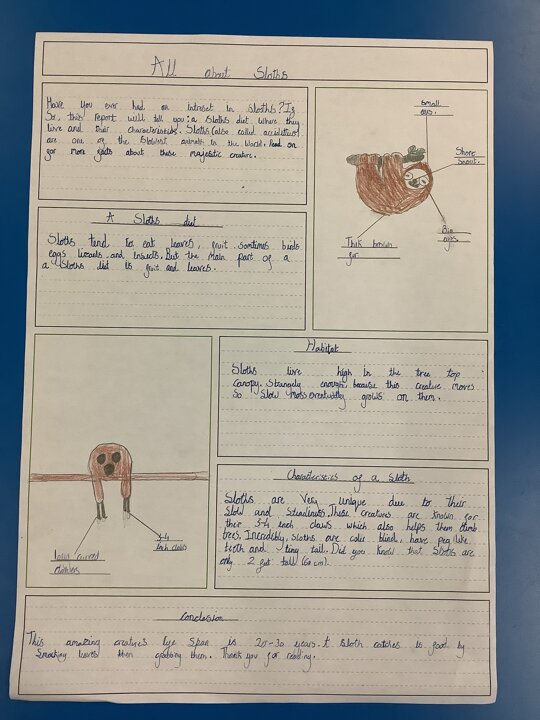 All about Sloths
Have you ever had an intrest in sloths? If
So, this report will tell you: a Sloths diet where they
live and their characteristics. Sloths (also called
are one of the slowest animals in the world. Read on
for more facts about these majestic creature.
Small
ears.
Short
snout.
Big
eyes
Thick brown
fur
A Sloths diet
Sloths tend to eat leaves, fruit sometimes birds
eggs lizards and insects. But the main part of a
a Sloths diet is fruit and leaves.
Habitat
Sloths live high in the tree top
canopy. Strangely enough, because this creature moves
so slow moss eventually grows on them.
3-4
inch claws
curved
Characteristics of a Sloth
Sloths are very unique due to their
slow and steadiness. These creatures are known for
their 3-4 inch claws which also helps them climb
trees. Incredibly, sloths are color blind, have peg like
teeth and tiny tail. Did you know that sloths are
only 2 feet tall (60 cm).
Conclusion
This amazing creatures life span is 20-30 years. A Sloth catches is food by
Smacking leaves then grabbing them. Thank you for reading.